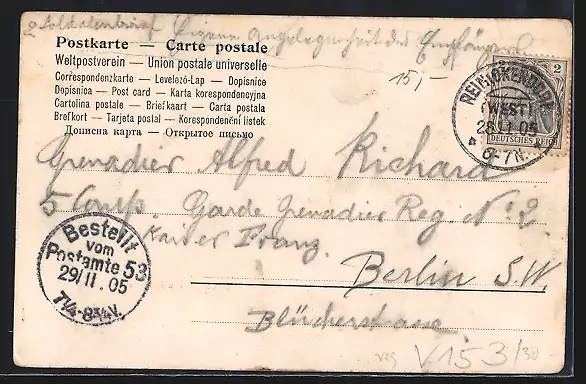 Soldatenbrief Eigene Angelegenheit des Empfängers
Postkarte — Carte postale
Weltpostverein — Union postale universelle
Correspondenzkarte — Levelező-Lap — Dopisnice
Dopisnica — Post card — Karta korespondencyjna
Cartolina postale — Briefkaart — Carta postala
Brefkort — Tarjeta postal — Korespondenční listek
Дописна карта — Открытое письмо
15,-
2
DEUTSCHES REICH
REINICKENDORF
(WEST)
28.11.05
6-7N.
Grenadier Alfred Richard
5 Comp. Garde Grenadier Reg. No 2
Kaiser Franz
Berlin S.W.
Blücherstrasse
Bestellt
vom
Postamte 53
29/11.05
7¼-8¾V.
V153/30